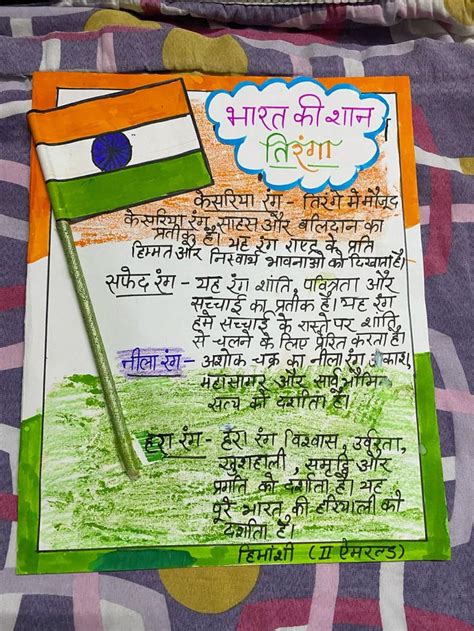 भारत की शान
तिरंगा
केसरिया रंग - तिरंगे में मौजूद
केसरिया रंग, साहस और बलिदान का
प्रतीक है। यह रंग राष्ट्र के प्रति
हिम्मत और निस्वार्थ भावनाओं को दिखाता है।
सफेद रंग - यह रंग शांति, पवित्रता और
सच्चाई का प्रतीक है। यह रंग
हमें सच्चाई के रास्ते पर शांति
से चलने के लिए प्रेरित करता है।
नीला रंग - अशोक चक्र का नीला रंग आकाश,
महासागर और सार्वभौमिक
सत्य को दर्शाता है।
हरा रंग - हरा रंग विश्वास, उर्वरता,
खुशहाली, समृद्धि और
प्रगति को दर्शाता है। यह
पूरे भारत की हरियाली को
दर्शाता है।
हिमांशी (II ऐमरल्ड)